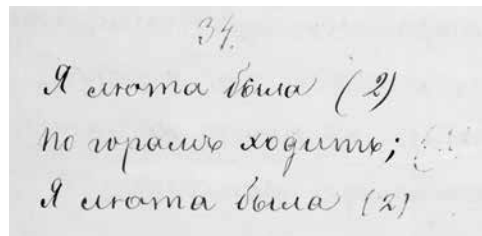 34.
Я люта была (2)
По горамъ ходить;
Я люта была (2)